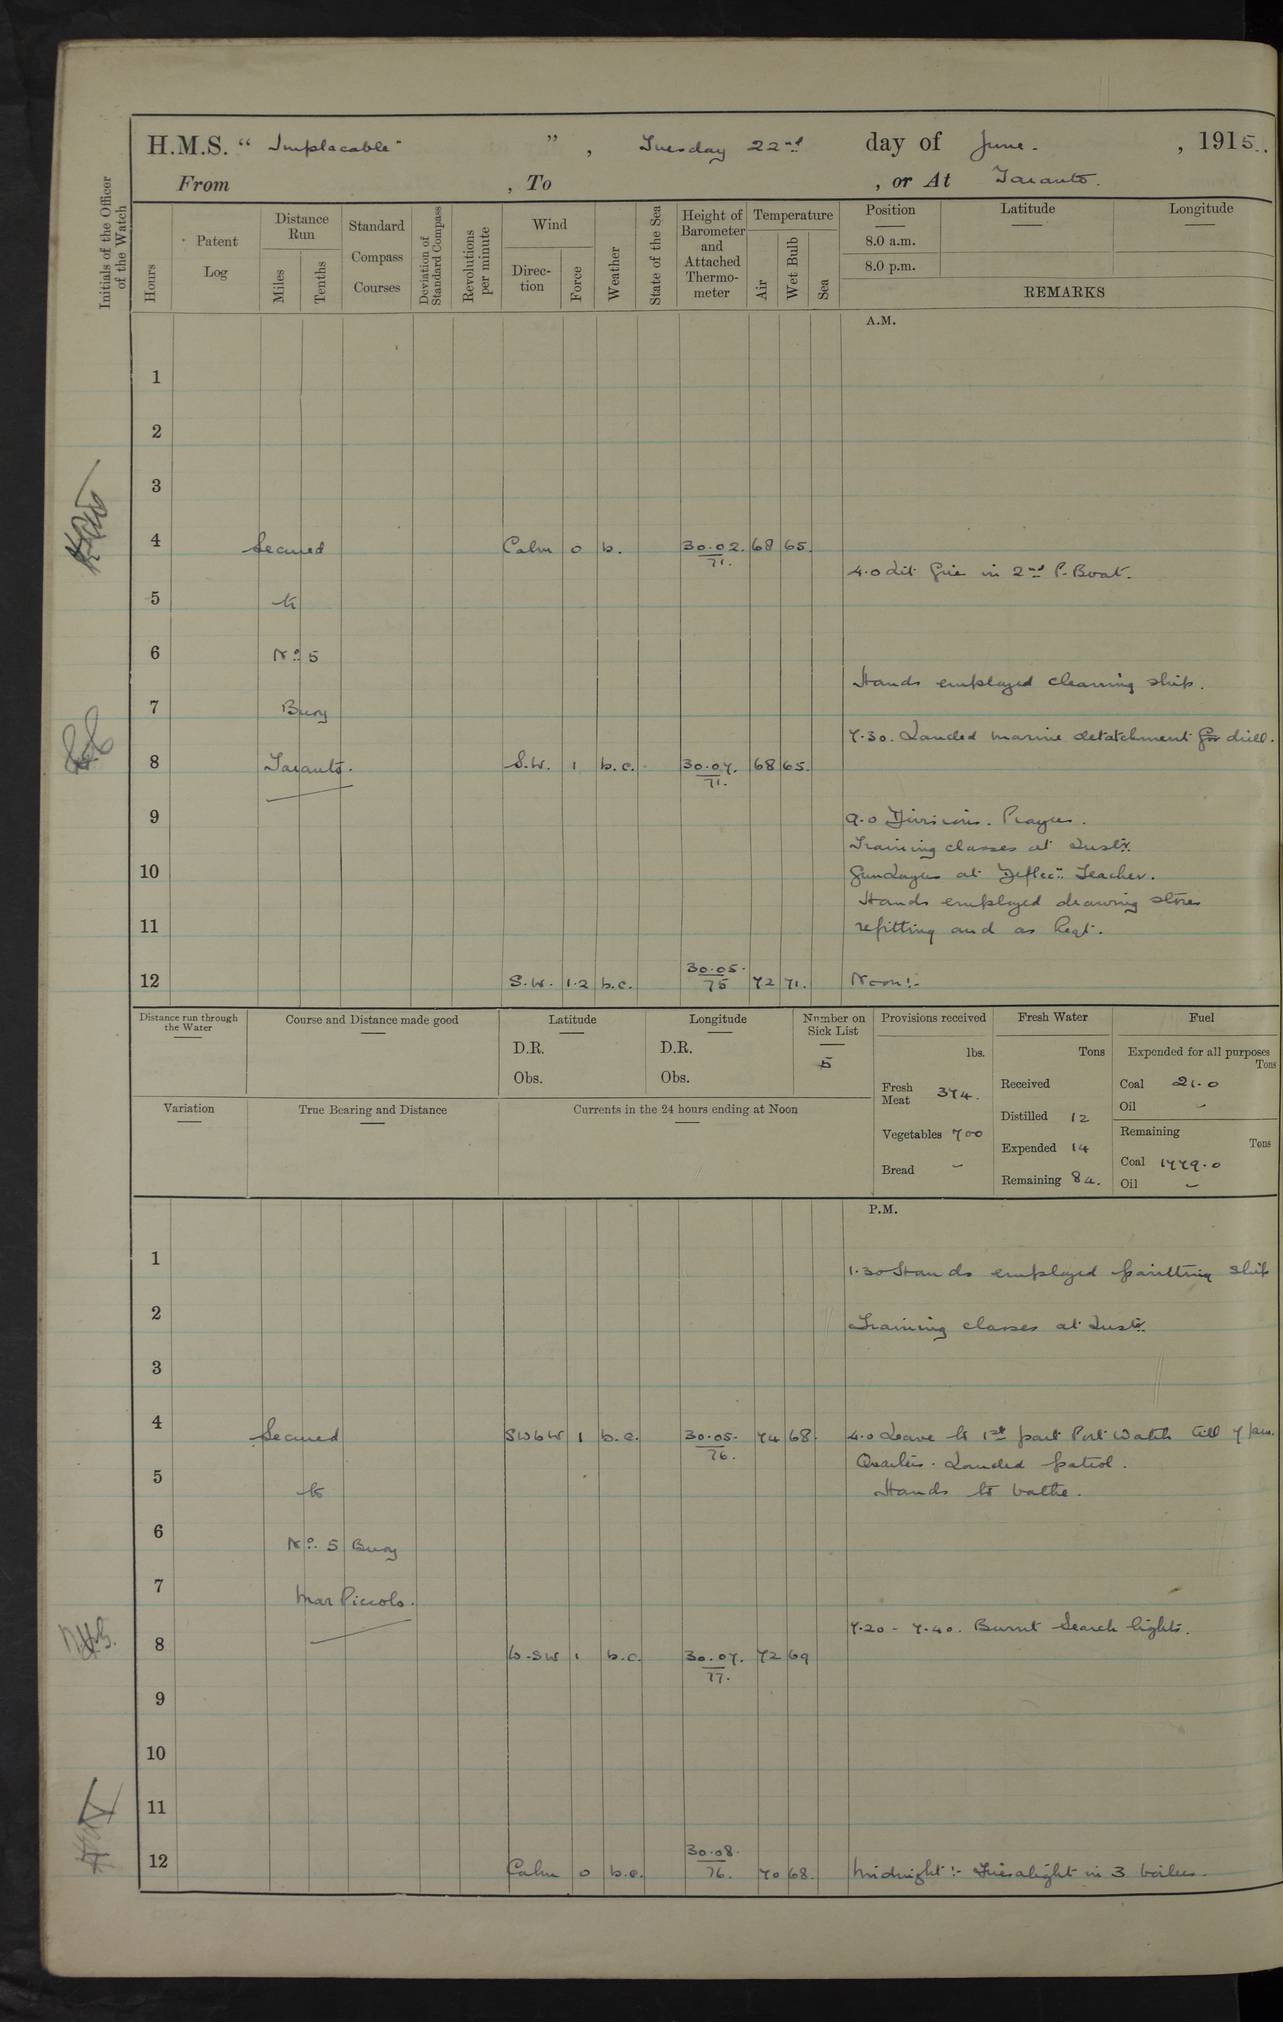 H.M.S. " Implacable " , Tuesday 22nd day of June. , 1915.
From , To , or At Taranto.
Initials of the Officer of the Watch
Hours
Patent Log
Distance Run
Miles
Tenths
Standard Compass Courses
Deviation of Standard Compass
Revolutions per minute
Wind
Direction
Force
Weather
State of the Sea
Height of Barometer and Attached Thermometer
Temperature
Air
Wet Bulb
Sea
Position
8.0 a.m.
8.0 p.m.
Latitude
Longitude
REMARKS
A.M.
1
2
3
4 Secured Calm 0 b. 30.02. 71. 68 65.
4.0 Lit fire in 2nd P. Boat.
5 to
6 No. 5
Hands employed cleaning ship.
7 Buoy
7.30. Landed marine detatchment for drill.
8 Taranto. S.W. 1 b.c. 30.07. 71. 68 65.
9 9.0 Divisions. Prayers.
Training classes at Instn.
10 Gunlayers at Deflecn. Teacher.
Hands employed drawing stores
11 refitting and as reqt.
12 S.W. 1.2 b.c. 30.05. 75 72 71. Noon:-
Distance run through the Water
Course and Distance made good
Latitude
D.R.
Obs.
Longitude
D.R.
Obs.
Number on Sick List
5
Provisions received
lbs.
Fresh Meat 374.
Vegetables 700
Bread -
Fresh Water
Tons
Received
Distilled 12
Expended 14
Remaining 84.
Fuel
Expended for all purposes
Tons
Coal 21.0
Oil -
Remaining
Tons
Coal 1779.0
Oil -
Variation
True Bearing and Distance
Currents in the 24 hours ending at Noon
P.M.
1 1.30 Hands employed painting ship
2 Training classes at Instn.
3
4 Secured SWbW 1 b.c. 30.05. 76. 74 68. 4.0 Leave to 1st part Port Watch till 7 p.m.
Quarters. Landed patrol.
5 to Hands to bathe.
6 No. 5 Buoy
7 Mar Piccolo.
7.20 - 7.40. Burnt Search lights.
8 W-SW 1 b.c. 30.07. 77. 72 69
9
10
11
12 Calm 0 b.c. 30.08. 76. 70 68. Midnight:- Fires alight in 3 boilers.